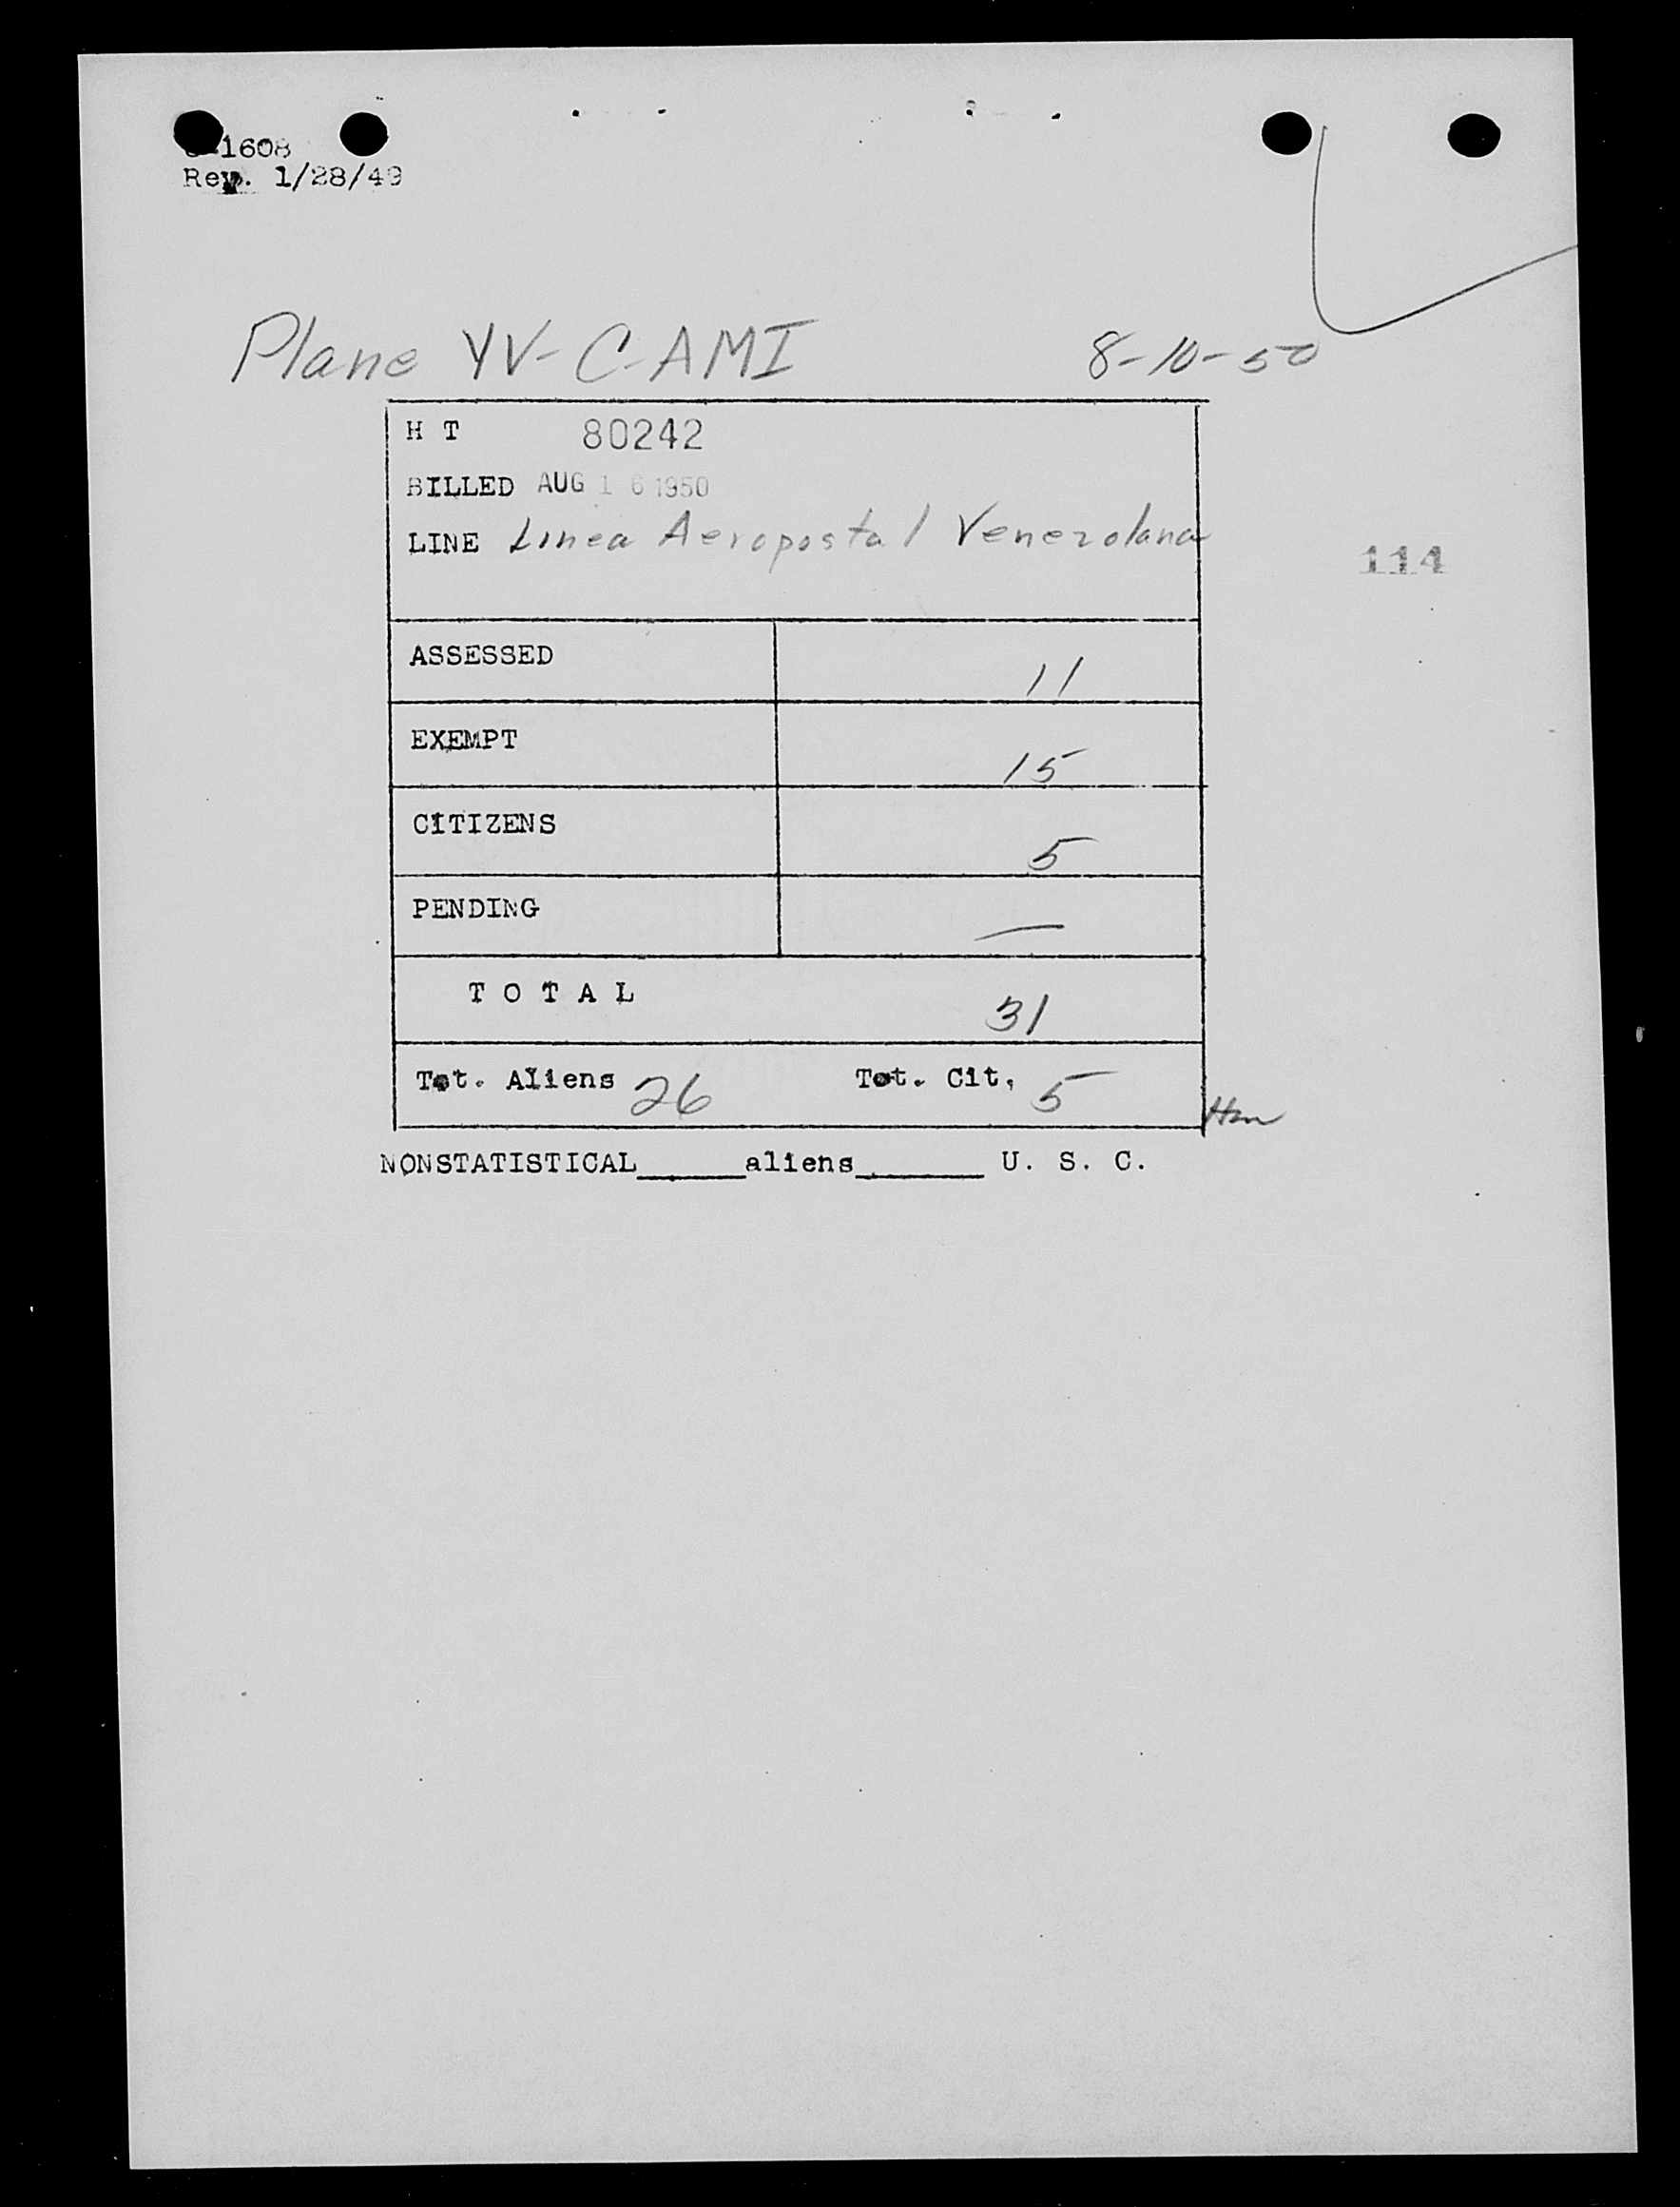 1608
Rev. 1/28/49
Plane YV-C-AMI 8-10-50
H T 80242
BILLED AUG 16 1950
LINE Linea Aeropostal Venezolana
114
ASSESSED 11
EXEMPT 15
CITIZENS 5
PENDING —
T O T A L 31
Tot. Aliens 26 Tot. Cit. 5
NONSTATISTICAL______aliens_______ U. S. C.